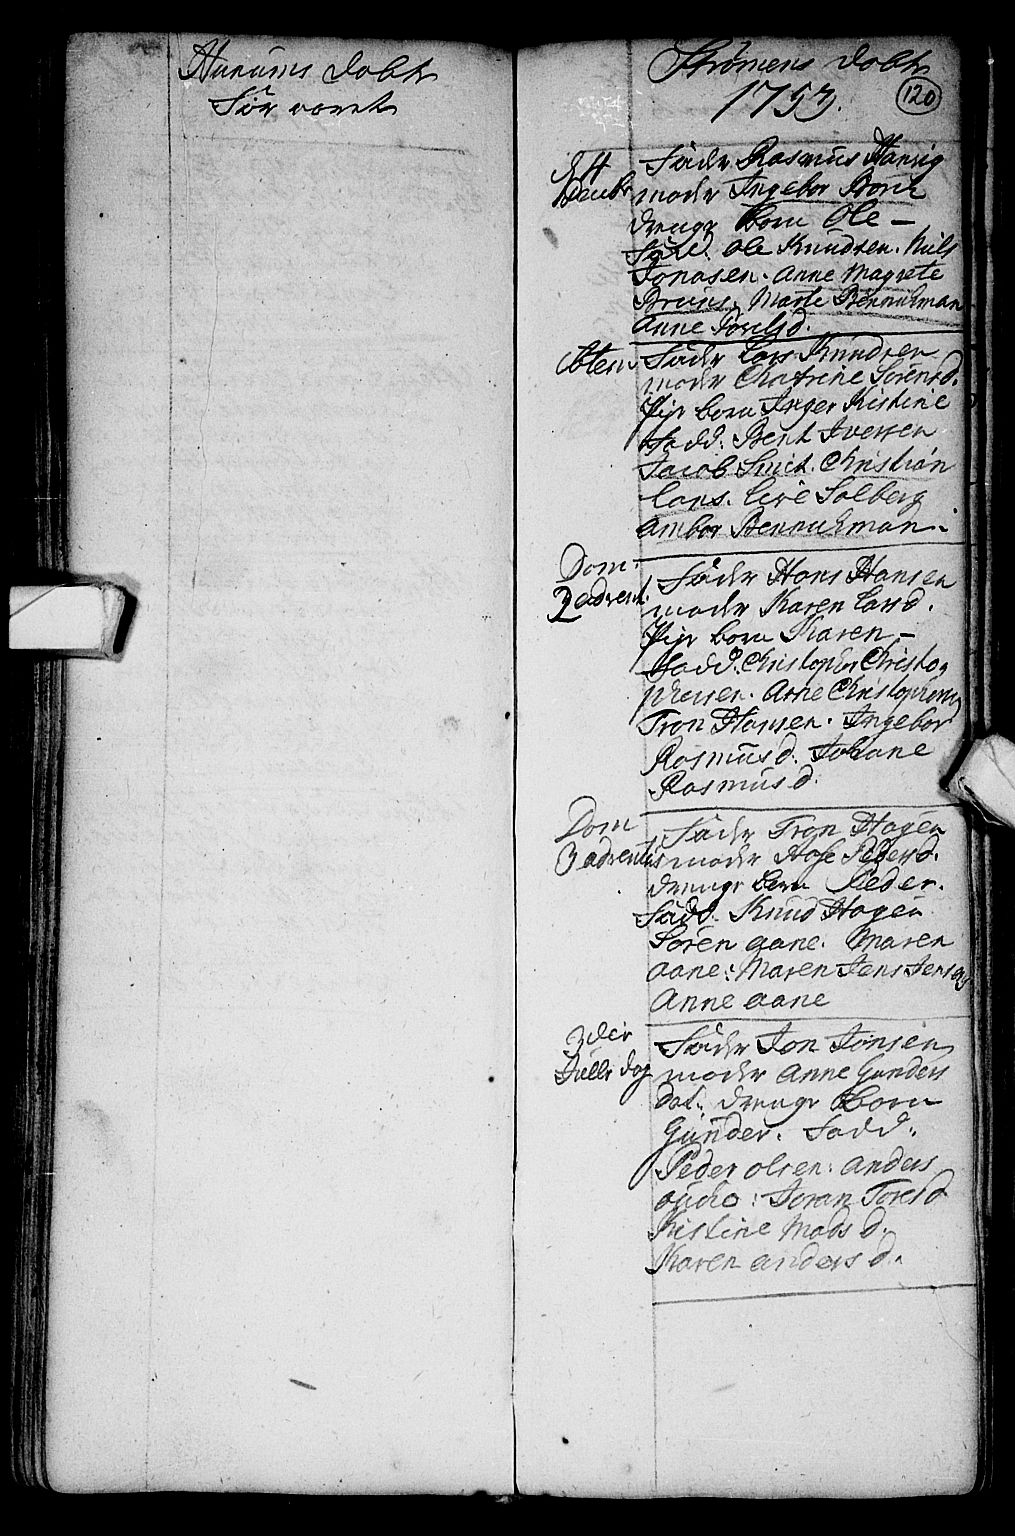 Hurums Dobte
før været
Strömens Dobte
120
1753.
Fader Rasmus Hansig
moder Ingebor
drenge born Ole –
fad. Ole Knudsen. Nils
Jonasen. Anne Magrete
Bruns. Marte Bennichman
Anne
Fader Lars Knudsen
moder Chatrine Sörensd.
Pige born Inger Kistine
fadd. Bent Iversen
Jacob Smit. Christian
Lars. Live Solberg
Ambor Bennichman.
Dom.
2 advent.
Fader Hans Hansen
moder Karen Larsd.
Pige born Karen –
fadd. Christopher Christo
phersen. Anne Christophers
Tron Hansen. Ingebor
Rasmusd. Johane
Rasmusd.
Dom
3 adventis
Fader Tron Hagen
moder Pedersd.
drenge born Peder.
fadd. Knud Hagen
Sören aane. Maren
aane. Maren Jens
Anne aane
3der
Julle dag
Fader Jon Jonsen
moder Anne Gunders
dat. drenge born
Gunder. fadd.
Peder olsen. anders
Joran Toresd
Kistine Mads d.
Karen anders d.